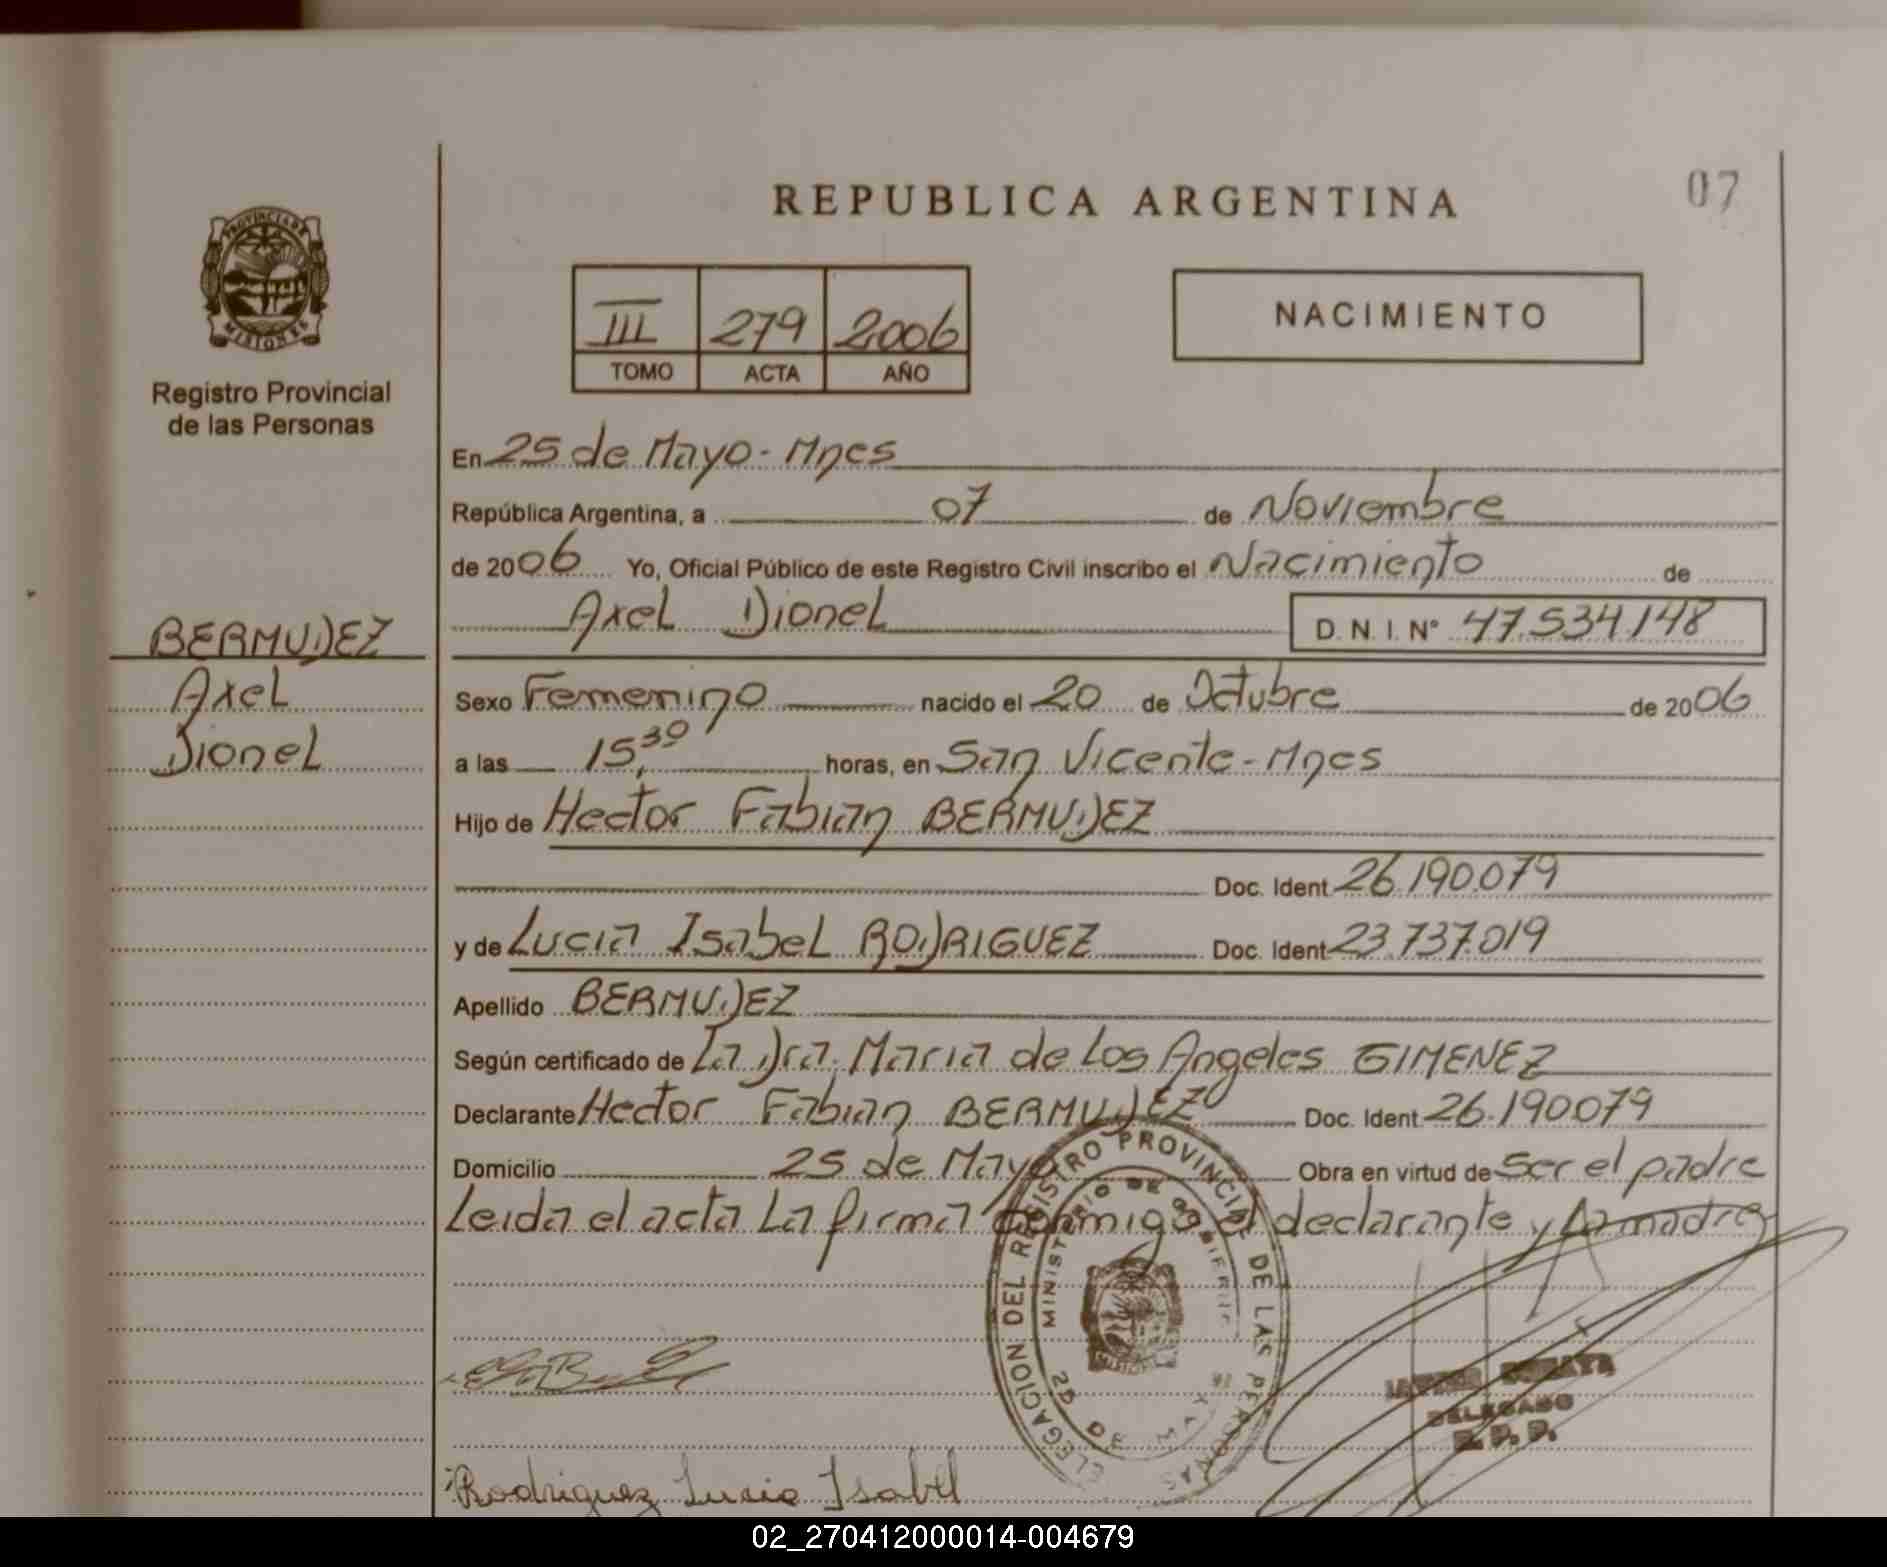 REPUBLICA ARGENTINA
07
PROVINCIA DE
MISIONES
Registro Provincial
de las Personas
III 279 2006
TOMO ACTA AÑO
NACIMIENTO
En 25 de Mayo - Mnes
República Argentina, a 07 de Noviembre
de 2006 Yo, Oficial Público de este Registro Civil inscribo el Nacimiento de
Axel Dionel D. N. I. N° 47.534.148
BERMUDEZ
Axel
Dionel
Sexo Femenino nacido el 20 de Octubre de 2006
a las 15,30 horas, en San Vicente - Mnes
Hijo de Hector Fabian BERMUDEZ
Doc. Ident 26.190.079
y de Lucia Isabel RODRIGUEZ Doc. Ident 23.737.019
Apellido BERMUDEZ
Según certificado de La Dra. Maria de Los Angeles GIMENEZ
Declarante Hector Fabian BERMUDEZ Doc. Ident 26.190.079
Domicilio 25 de Mayo Obra en virtud de ser el padre
Leida el acta La firma conmigo el declarante y La madre
DELEGACION DEL REGISTRO PROVINCIAL DE LAS PERSONAS
MINISTERIO DE GOBIERNO
25 DE MAYO
DELEGADO
R. P. P.
Rodriguez Lucia Isabel
02_270412000014-004679